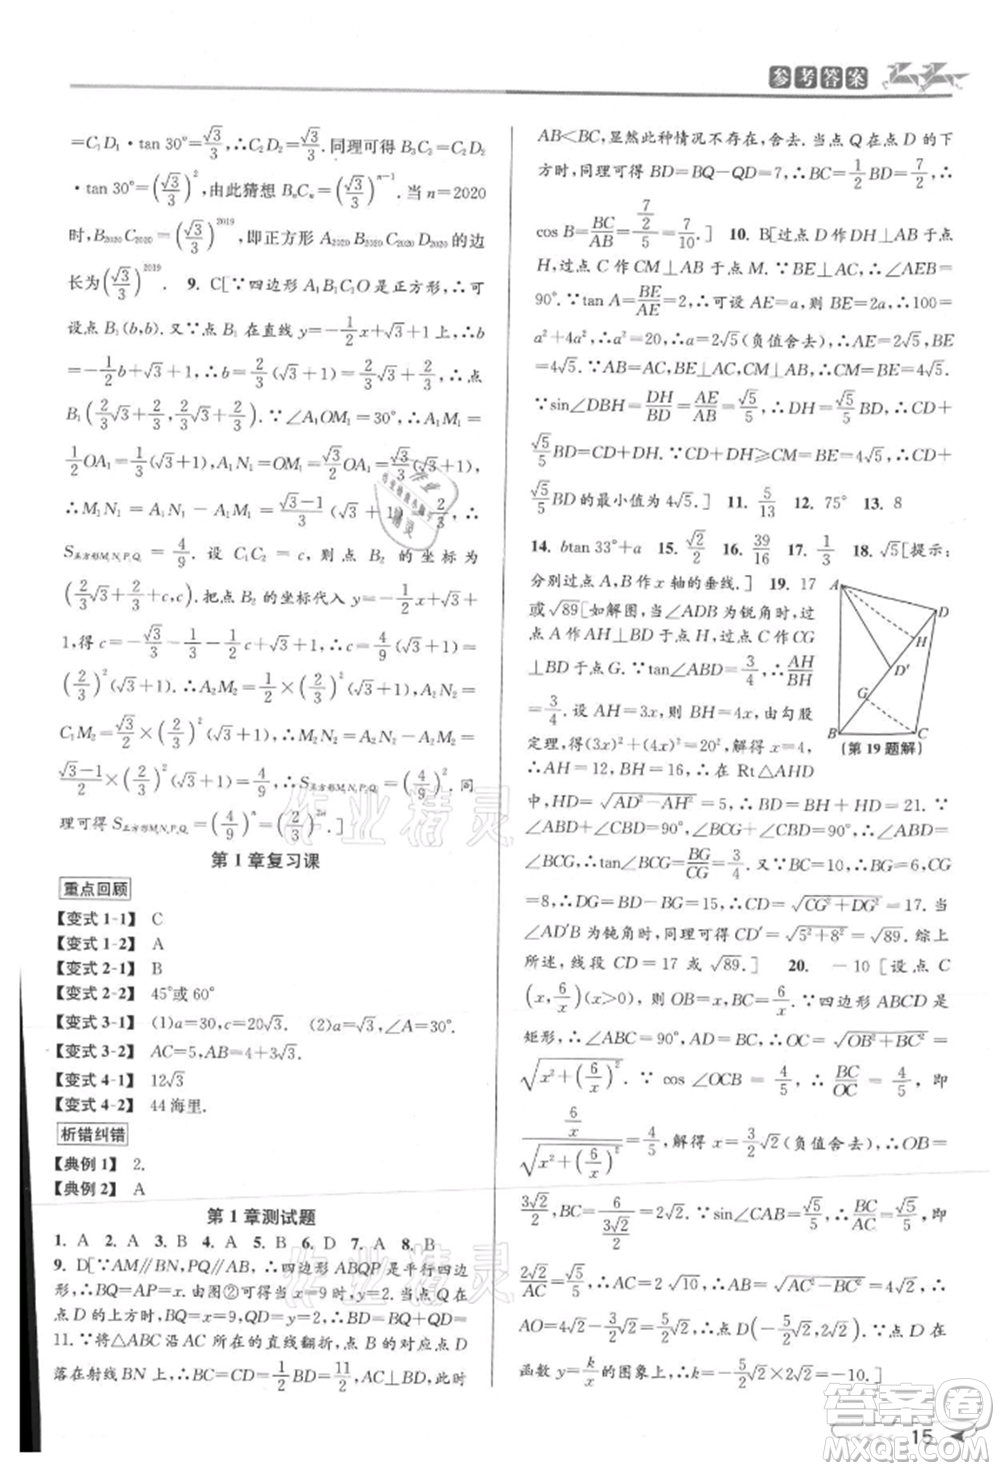 参考答案
=C₁D₁·tan 30°=√3/3,∴C₂D₂=√3/3.同理可得 C₃D₃=C₂D₂
·tan 30°=(√3/3)²,由此猜想 BₙCₙ=(√3/3)ⁿ⁻¹.当 n=2020
时,B₂₀₂₀C₂₀₂₀=(√3/3)²⁰¹⁹,即正方形 A₂₀₂₀B₂₀₂₀C₂₀₂₀D₂₀₂₀的边
长为(√3/3)²⁰¹⁹. 9. C[∵四边形 A₁B₁C₁O 是正方形,∴可
设点 B₁(b,b).又∵点 B₁ 在直线 y=-1/2x+√3+1上,∴b
=-1/2b+√3+1,∴b=2/3(√3+1)=2/3√3+2/3,∴点
B₁(2/3√3+2/3,2/3√3+2/3).∵∠A₁OM₁=30°,∴A₁M₁=
1/2OA₁=1/3(√3+1),A₁N₁=OM₁=√3/2OA₁=√3/3(√3+1).
∴M₁N₁=A₁N₁-A₁M₁=(√3-1)/3(√3+1)=2/3,∴
S正方形M₁N₁P₁Q₁=4/9. 设 C₁C₂=c,则点 B₂ 的坐标为
(2/3√3+2/3+c,c).把点 B₂ 的坐标代入 y=-1/2x+√3+
1,得 c=-1/2(2/3√3+2/3+c)+√3+1.∴c=4/9(√3+1)=
(2/3)²(√3+1).∴A₂M₂=1/2×(2/3)²(√3+1),A₂N₂=
C₁M₂=√3/2×(2/3)²(√3+1).∴M₂N₂=A₂N₂-A₂M₂=
(√3-1)/2×(2/3)²(√3+1)=4/9,∴S正方形M₂N₂P₂Q₂=(4/9)².同
理可得S正方形MₙNₙPₙQₙ=(4/9)ⁿ=(2/3)²ⁿ.]
第 1 章复习课
重点回顾
【变式 1-1】 C
【变式 1-2】 A
【变式 2-1】 B
【变式 2-2】 45°或 60°
【变式 3-1】 (1)a=30,c=20√3 (2)a=√3,∠A=30°.
【变式 3-2】 AC=5,AB=10.
【变式 4-1】 12√3
【变式 4-2】 44 海里.
析错纠错
【典例 1】 2.
【典例 2】 A
第 1 章测试题
1. A 2. A 3. B 4. A 5. B 6. D 7. A 8. B
9. D[∵AM∥BN,PQ∥AB,∴四边形 ABQP 是平行四边
形,∴BQ=AP=x.由图②可得当 x=9时,BQ=9.此时点 Q 在
点 D 的上方时,BQ=AP=x=9,QD=2,∴BD=BQ+QD=
11.∵将△ABC 沿 AC 所在的直线翻折,点 B 的对应点 D
落在射线 BN 上,∴BC=CD=1/2BD=11/2,AC⊥BD,此时
AB<BC,显然此种情况不存在,舍去.当点 Q 在点 D 的下
方时,同理可得 BD=BQ-QD=7,∴BC=1/2BD=7/2,∴
cos B=BC/AB=(7/2)/5=7/10.] 10. B[过点 D 作 DH⊥AB 于点
H,过点 C 作 CM⊥AB 于点 M.∵BE⊥AC,∴∠AEB=
90°.∵tan A=BE/AE=2,∴可设 AE=a,则 BE=2a,∴100=
a²+4a²,∴a²=20,∴a=2√5(负值舍去),∴AE=2√5,BE
=4√5.∵AB=AC,BE⊥AC,CM⊥AB,∴CM=BE=4√5.
∵sin∠DBH=DH/BD=AE/AB=√5/5,∴DH=√5/5BD,∴CD+
√5/5BD=CD+DH.∵CD+DH≥CM=4√5,∴CD+
√5/5BD 的最小值为 4√5.] 11. 5/13 12. 75° 13. 8
14. btan 33°+a 15. √2/2 16. 39/16 17. 1/3 18. √5[提示:
分别过点 A,B 作 x 轴的垂线.] 19. 17
或√89[如解图,当∠ADB 为锐角时,过
点 A 作 AH⊥BD 于点 H,过点 C 作 CG
⊥BD 于点 G.∵tan∠ABD=3/4,∴AH/BH=
3/4.设 AH=3x,则 BH=4x,由勾股
定理,得(3x)²+(4x)²=20²,解得 x=4,
∴AH=12,BH=16.在 Rt△AHD
A
D
H
D′
G
B
C
(第 19 题解)
中,HD=√(AD²-AH²)=5,∴BD=BH+HD=21.∵
∠ABD+∠CBD=90°,∠BCG+∠CBD=90°,∴∠ABD
=∠BCG,∴tan∠BCG=BG/CG=3/4.又∵BC=10,∴BG=6,CG
=8,∴DG=BD-BG=15,∴CD=√(CG²+DG²)=17.当
∠AD′B 为钝角时,同理可得 CD′=√(5²+8²)=√89.综上
所述,线段 CD=17 或√89.] 20. -10[设点 C
(x,6/x)(x>0),则 OB=x,BC=6/x.∵四边形 ABCD 是
矩形,∴∠ABC=90°,∴OC=√(OB²+BC²)=
√(x²+(6/x)²).∵cos∠OCB=4/5,∴BC/OC=4/5,即
(6/x)/√(x²+(6/x)²)=4/5,解得 x=3√2/2(负值舍去),∴OB=
3√2/2,BC=6/(3√2/2)=2√2.∵sin∠CAB=√5/5,∴BC/AC=√5/5,即
2√2/AC=√5/5,∴AC=2√10,∴AB=√(AC²-BC²)=4√2,∴
AO=4√2-3√2/2=5√2/2,∴点D(-5√2/2,2√2).∵点 D 在
函数 y=k/x的图象上,∴k=-5√2/2×2√2=-10.]
15
作业精灵
作业精灵
答案圈
MXQE.COM